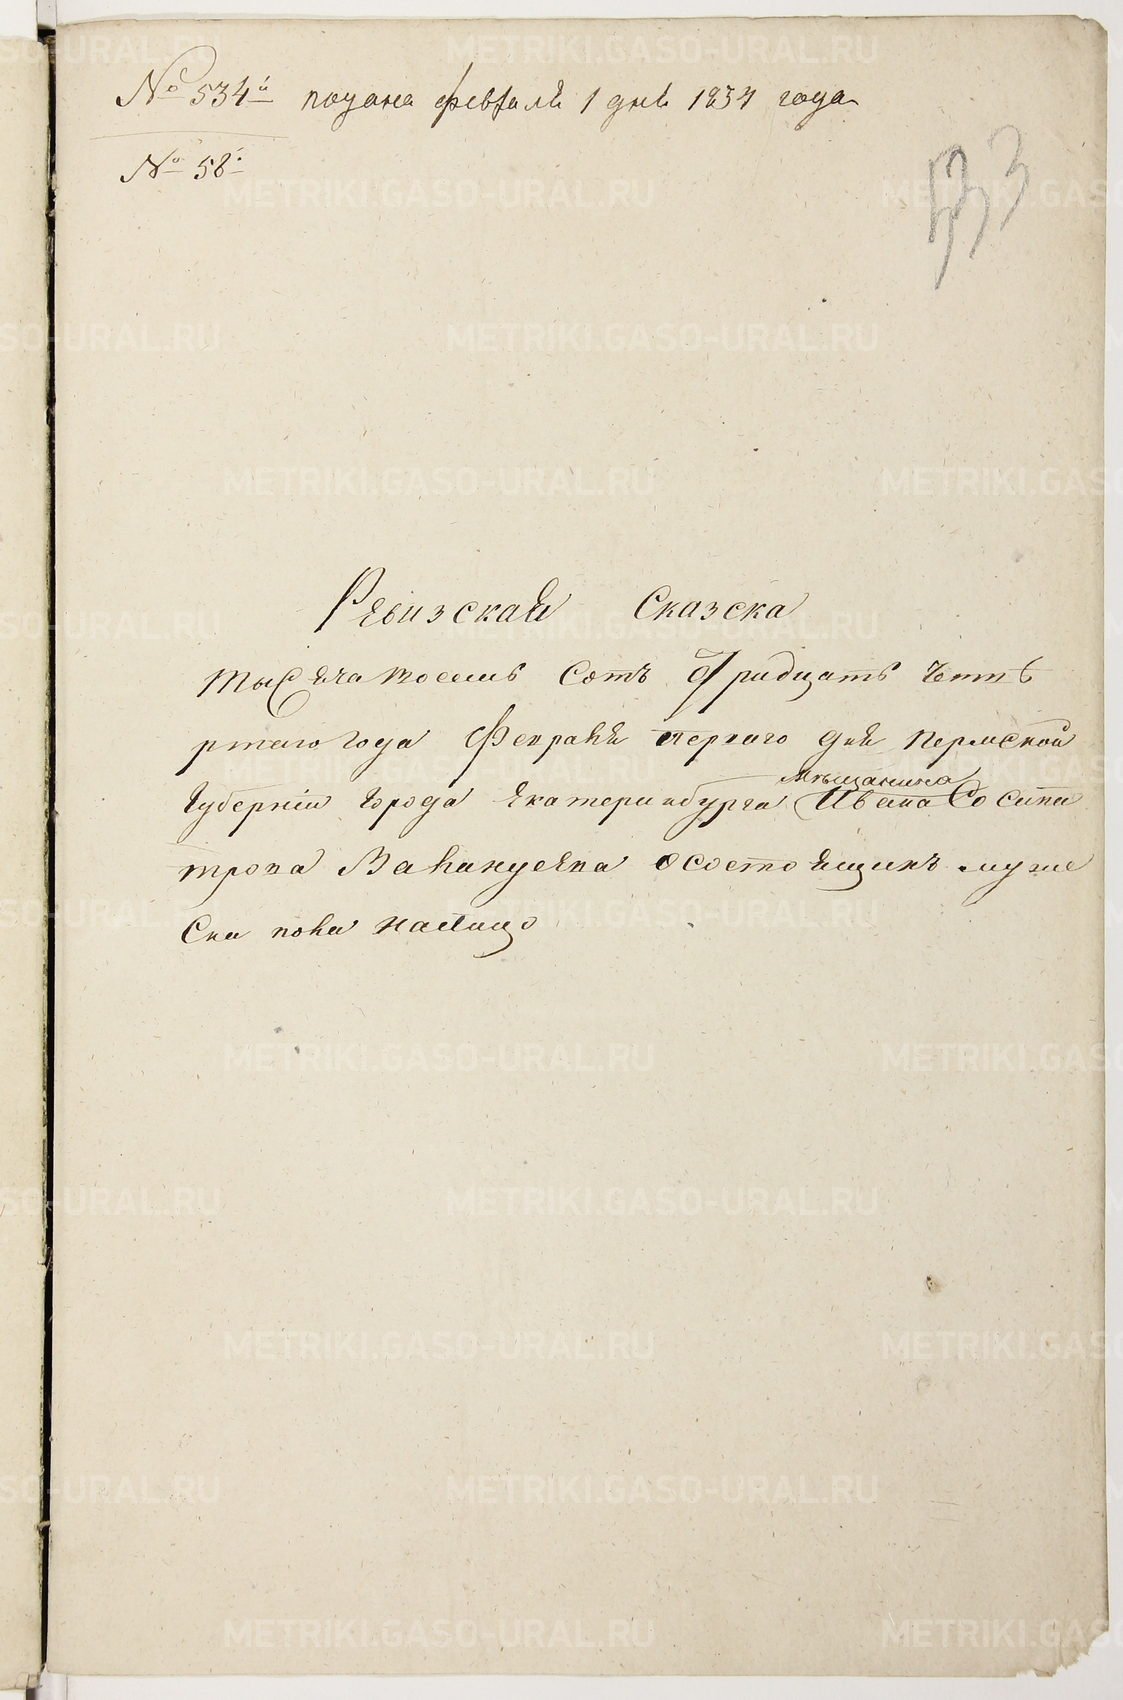 № 534й подана февраля 1 дня 1834 года
№ 58й
533
Ревизская Сказска
тысяча восемь сотъ Тридцать четве
ртаго Года Февраля перваго дня Пермской
Губерніи города Екатеринбурга мѣщанина Ивана Сосипа
трова о состоящихъ муже
ска пола на лицо
METRIKI.GASO-URAL.RU